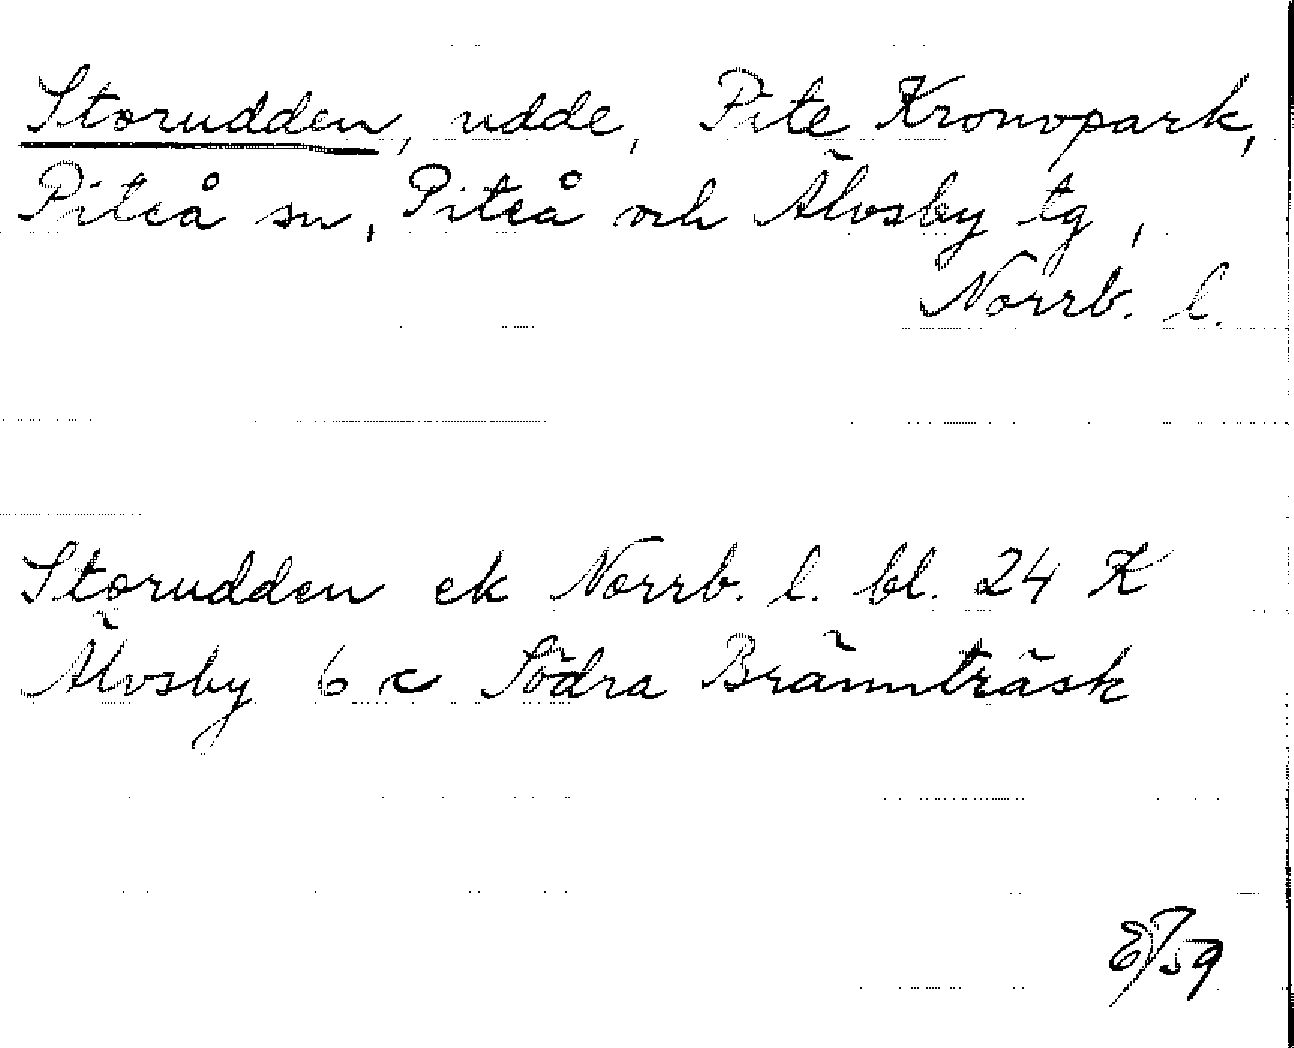 Storudden, udde, Pite Kronopark,
Piteå sn, Piteå och Älvsby tg,
Norrb. l.
Storudden ek Norrb. l. bl. 24 K
Älvsby 6 c Södra Brännträsk